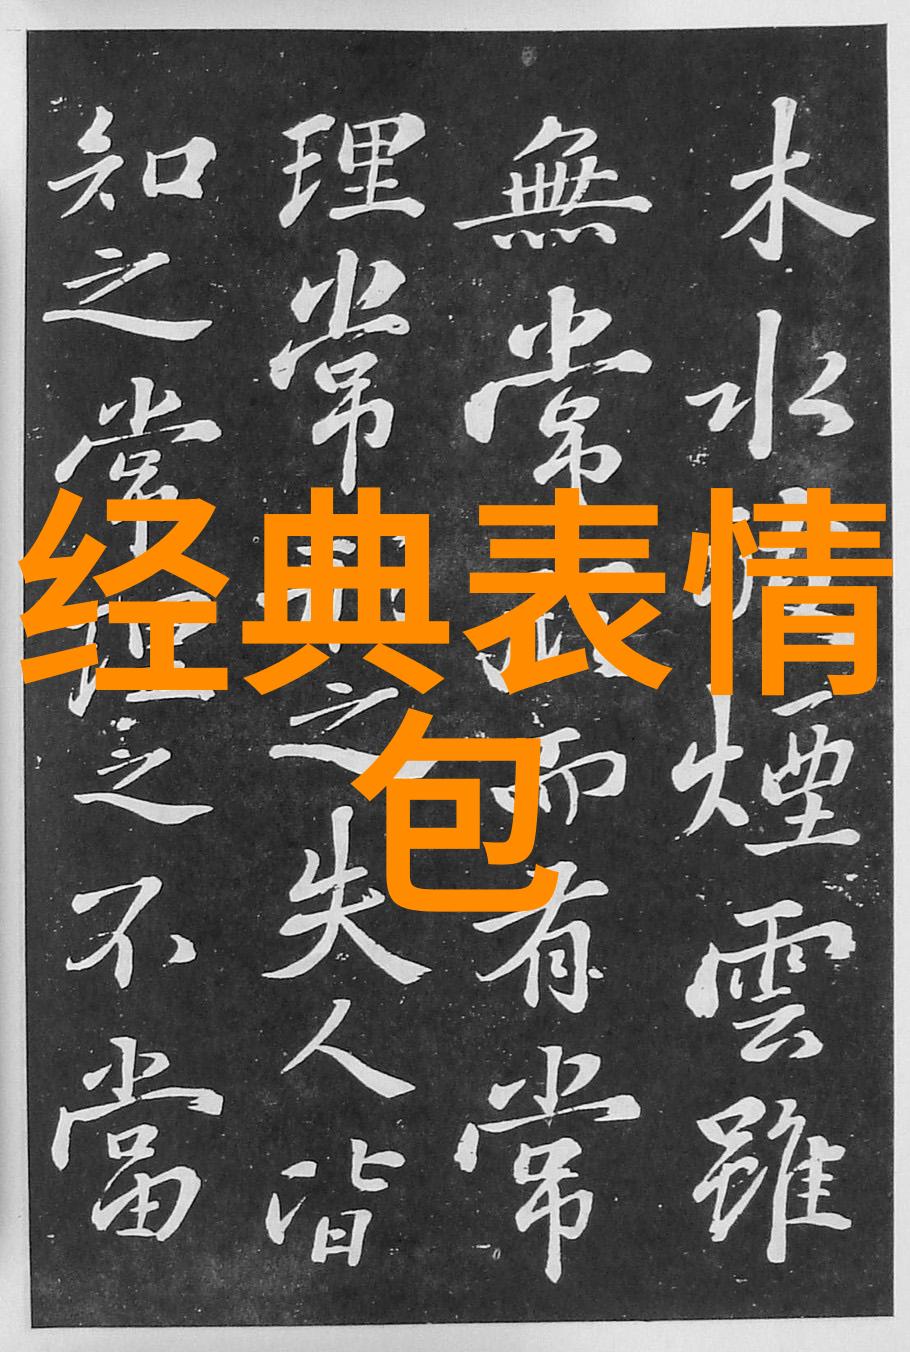 木水煙雲雖
無常而有常
理常之失人皆
知之常理之不當
经典表情
包